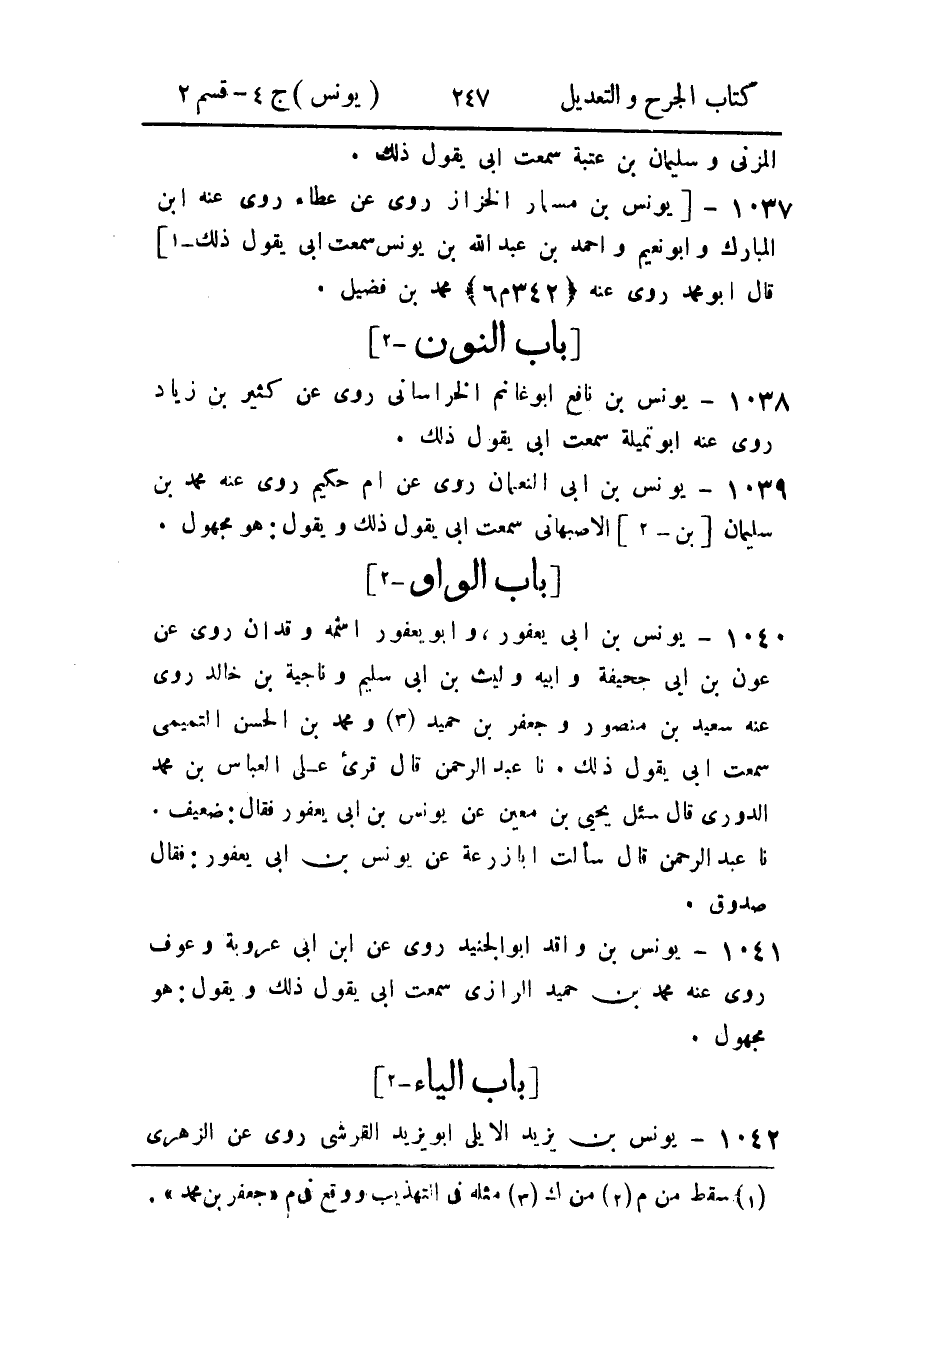 كتاب الجرح والتعديل ٢٤٧ (يونس) ج ٤ - قسم ٢
المزنى و سليمان بن عتبة سمعت ابى يقول ذلك .
١٠٣٧ - [ يونس بن مسار الخزاز روى عن عطاء روى عنه ابن
المبارك و ابونعيم و احمد بن عبد الله بن يونس سمعت ابى يقول ذلك - ١ ]
قال ابومحمد روى عنه ﴿٣٤٢م٦﴾ محمد بن فضيل .
[باب النون -٢]
١٠٣٨ - يونس بن نافع ابوغانم الخراسانى روى عن كثير بن زياد
روى عنه ابوتميلة سمعت ابى يقول ذلك .
١٠٣٩ - يونس بن ابى النعمان روى عن ام حكيم روى عنه محمد بن
سليمان [ بن - ٢ ] الاصبهانى سمعت ابى يقول ذلك و يقول : هو مجهول .
[باب الواو -٢]
١٠٤٠ - يونس بن ابى يعفور ، و ابو يعفور اسمه و قدان روى عن
عون بن ابى جحيفة و ابيه و ليث بن ابى سليم و ناجية بن خالد روى
عنه سعيد بن منصور و جعفر بن حميد (٣) و محمد بن الحسن التميمى
سمعت ابى يقول ذلك . نا عبد الرحمن قال قرئ على العباس بن محمد
الدورى قال سئل يحيى بن معين عن يونس بن ابى يعفور فقال : ضعيف .
نا عبد الرحمن قال سألت ابا زرعة عن يونس بن ابى يعفور : فقال
صدوق .
١٠٤١ - يونس بن واقد ابوالجنيد روى عن ابن ابى عروبة و عوف
روى عنه محمد بن حميد الرازى سمعت ابى يقول ذلك و يقول : هو
مجهول .
[باب الياء -٢]
١٠٤٢ - يونس بن يزيد الايلى ابويزيد القرشى روى عن الزهرى
(١) سقط من م (٢) من ك (٣) مثله فى التهذيب ووقع فى م «جعفر بن محمد» .